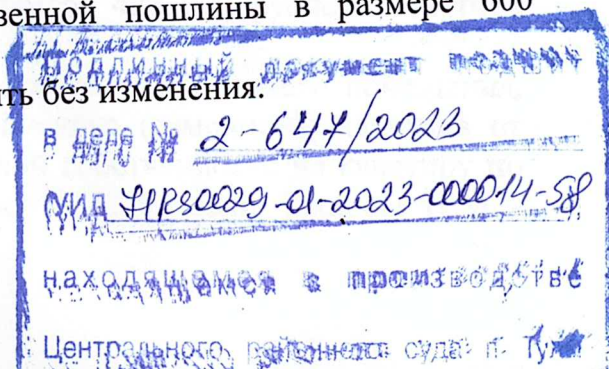 венной пошлины в размере 600
ть без изменения.
подлинный документ подшит
в деле № 2-647/2023
УИД 71RS0029-01-2023-000014-58
находящемся в производстве
Центрального районного суда г. Тулы